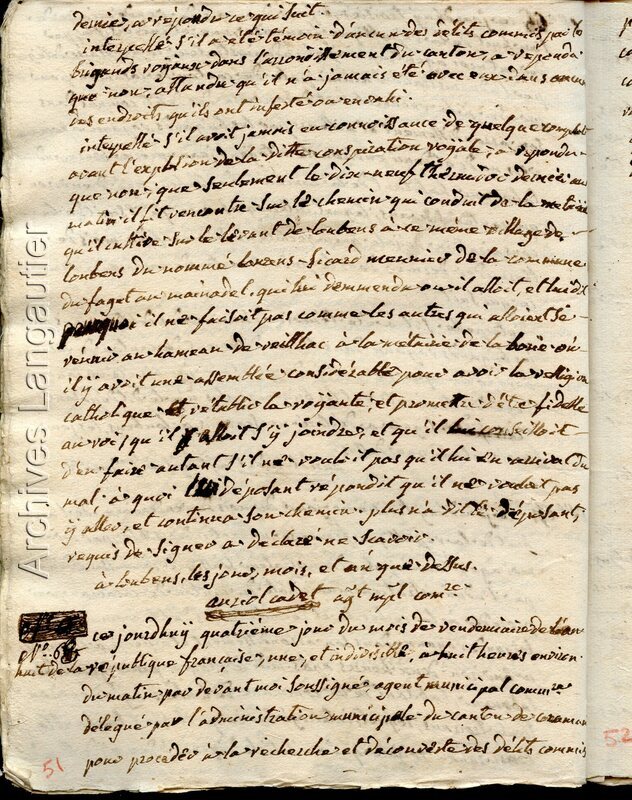 dernier, a répondu ce qui suit.
interpellé s'il a été témoin d'aucun des délits commis par le
brigands royaux dans l'arrondissement du canton, a repondu
que non, attandu qu'il n'a jamais été avec eux dans aucun
des endroits qu'ils ont infesté ou envahi.
interpellé s'il avoit jamais eu connoissance de quelque complot
avant l'explosion de la ditte conspiration royale, a repondu
que non, que seulement le dix-neuf thermidor dernier au
matin il fit rencontre sur le chemin qui conduit de la metairie
qu'il cultive sur le levant de loubens à ce même village de
loubens du nommé Sicard meunier de la commune
du faget au mainadel, qui lui demmenda ou il alloit, et lui dit
pourquoi il ne faisoit pas comme les autres qui alloient se
reunir au hameau de veilhac à la métairie de la borie où
il y avoit une assemblée considérable pour avoir la relligion
catholique et rétablir la royauté, et prometre d'éte fidelle
au roi, qu'il alloit s'y joindre, et qu'il lui conseilloit
d'en faire autant s'il ne vouloit pas qu'il lui en arrivat du
mal, a quoi déposant répondit qu'il ne vouloit pas
y aller, et continua son chemin plus n'a dit le déposant,
requis de signer a déclaré ne scavoir.
à loubens, les jour, mois, et an que dessus.
auriol cadet agt mpl comre
ce jourdhuy quatriéme jour du mois de vendemiaire de l'an
No. 65
huit de la république française, une, et indivisible, à huit heures environ
du matin par devant moi soussigné, agent municipal commre
délégué par l'administration municipale du canton de caraman
pour proceder à la recherche et découverte des délits commis
51
52
Archives Langautier